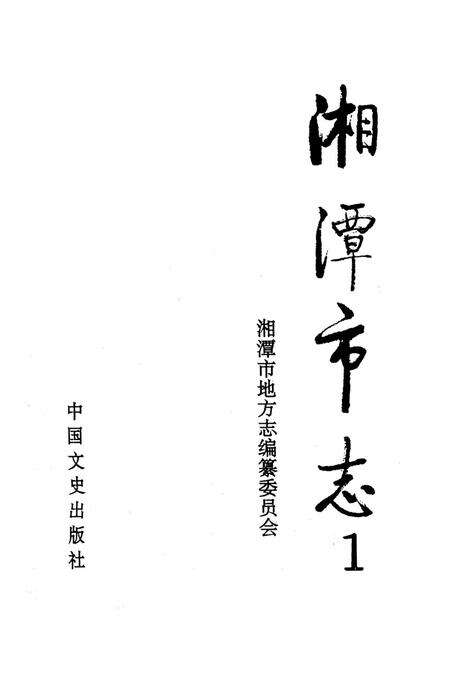 湘潭市志1
湘潭市地方志编纂委员会
中国文史出版社